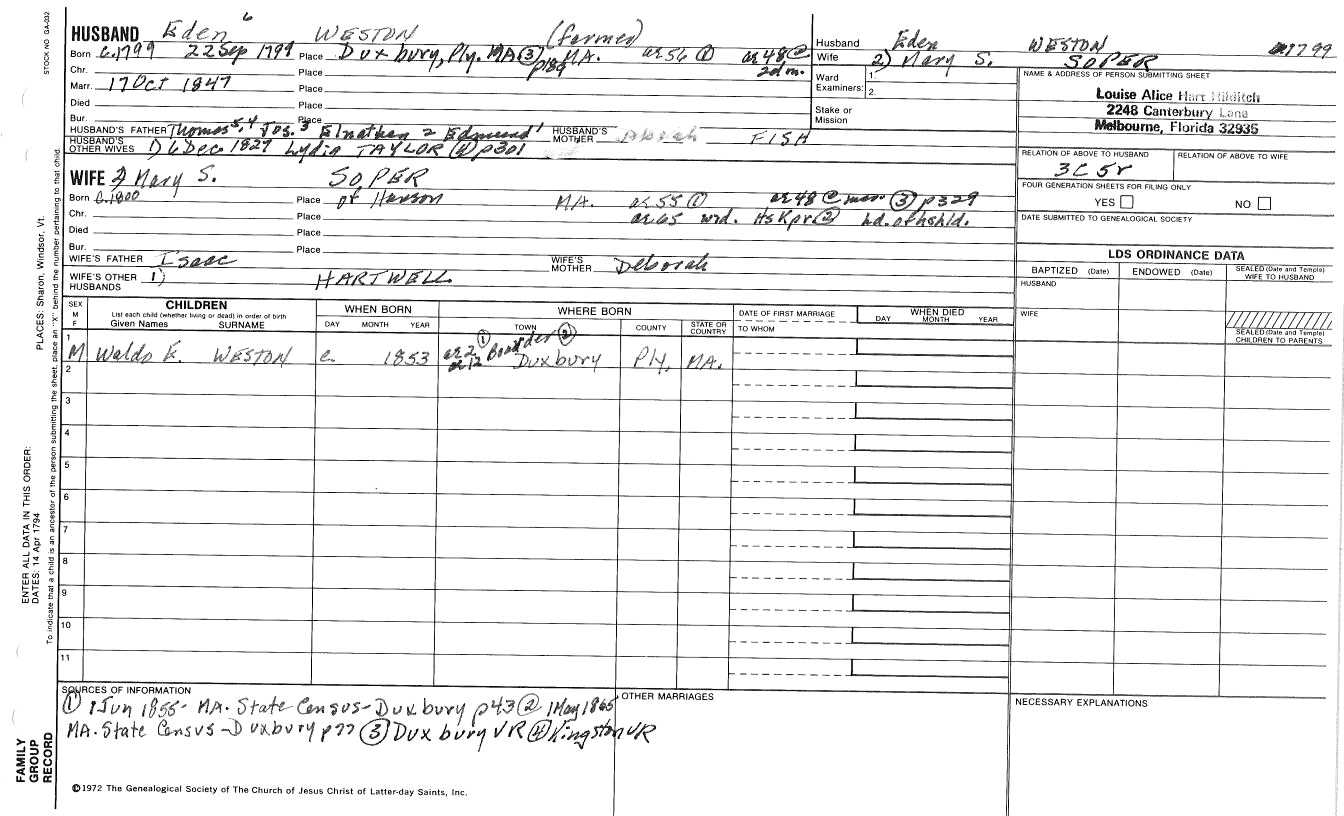 STOCK NO GA-032
HUSBAND Eden 6 WESTON (farmer)
Born c.1799 22 Sep 1799 Place Duxbury, Ply. MA ③ p189 MA. ae 56 ① ae 48 @ 2d m.
Chr. Place
Marr. 17 Oct 1847 Place
Died Place
Bur. Place
HUSBAND'S FATHER Thomas 5, 4 Jos. 3 Elnathan 2 Edmund 1 HUSBAND'S MOTHER Abigah FISH
HUSBAND'S OTHER WIVES 1) 6 Dec 1827 Lydia TAYLOR ④ p301
WIFE 2) Mary S. SOPER
Born c.1800 Place of Hanson MA. ae 55 ① ae 48 @ mar. ③ p329
Chr. Place ae 65 wid. HsKpr ② hd. of hshld.
Died Place
Bur. Place
WIFE'S FATHER Isaac WIFE'S MOTHER Deborah
WIFE'S OTHER HUSBANDS 1) HARTWELL
Husband Eden WESTON 1799
Wife 2) Mary S. SOPER
Ward Examiners: 1. 2.
Stake or Mission
NAME & ADDRESS OF PERSON SUBMITTING SHEET
Louise Alice Hart Hilditch
2248 Canterbury Lane
Melbourne, Florida 32935
RELATION OF ABOVE TO HUSBAND RELATION OF ABOVE TO WIFE
3C 5r
FOUR GENERATION SHEETS FOR FILING ONLY
YES NO
DATE SUBMITTED TO GENEALOGICAL SOCIETY
LDS ORDINANCE DATA
BAPTIZED (Date) ENDOWED (Date) SEALED (Date and Temple) WIFE TO HUSBAND
HUSBAND
WIFE
SEALED (Date and Temple) CHILDREN TO PARENTS
SEX M F CHILDREN WHEN BORN WHERE BORN DATE OF FIRST MARRIAGE WHEN DIED
List each child (whether living or dead) in order of birth
Given Names SURNAME DAY MONTH YEAR TOWN COUNTY STATE OR COUNTRY TO WHOM DAY MONTH YEAR
1 M Waldo E. WESTON c. 1853 ae 2 ① ae 12 Boarder ② Duxbury Ply. MA.
2
3
4
5
6
7
8
9
10
11
SOURCES OF INFORMATION
① 1 Jun 1855- MA. State Census-Duxbury p43 ② 1 May 1865
MA. State Census-Duxbury p77 ③ Duxbury VR ④ Kingston VR
OTHER MARRIAGES
NECESSARY EXPLANATIONS
©1972 The Genealogical Society of The Church of Jesus Christ of Latter-day Saints, Inc.
PLACES: Sharon, Windsor, Vt.
To indicate that a child is an ancestor of the person submitting the sheet, place an "X" behind the number pertaining to that child.
ENTER ALL DATA IN THIS ORDER:
DATES: 14 Apr 1794
FAMILY GROUP RECORD